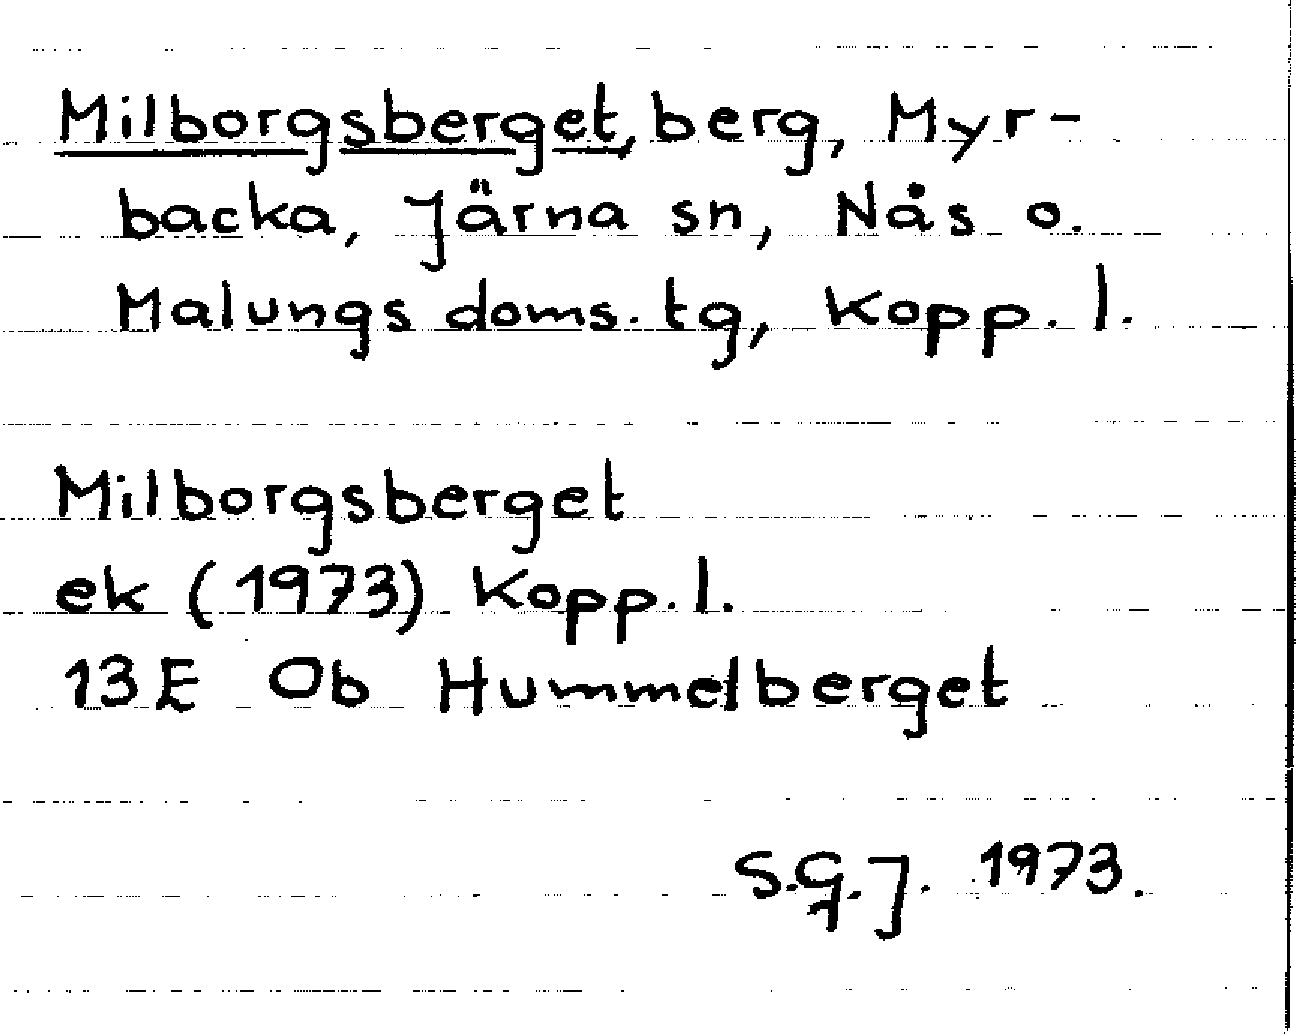 Milborgsberget, berg, Myr-
backa, Järna sn, Nås o.
Malungs doms. tg, Kopp. l.
Milborgsberget
ek (1973) Kopp. l.
13E Ob Hummelberget
S.G.J. 1973.